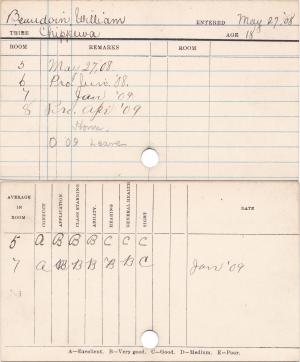 Beaudoin, William ENTERED May 27, '08
TRIBE Chippewa AGE 18
ROOM REMARKS ROOM
5 May 27, 08
6 Pro. Jun. '08.
7 Jan '09
8 Pro. Apr '09
Home
D 09 Leave
AVERAGE IN ROOM CONDUCT APPLICATION CLASS STANDING ABILITY. HEARING GENERAL HEALTH SIGHT DATE
5 A B B B C C C
7 A B B B B B C Jan '09
A—Excellent. B—Very good. C—Good. D—Medium. E—Poor.